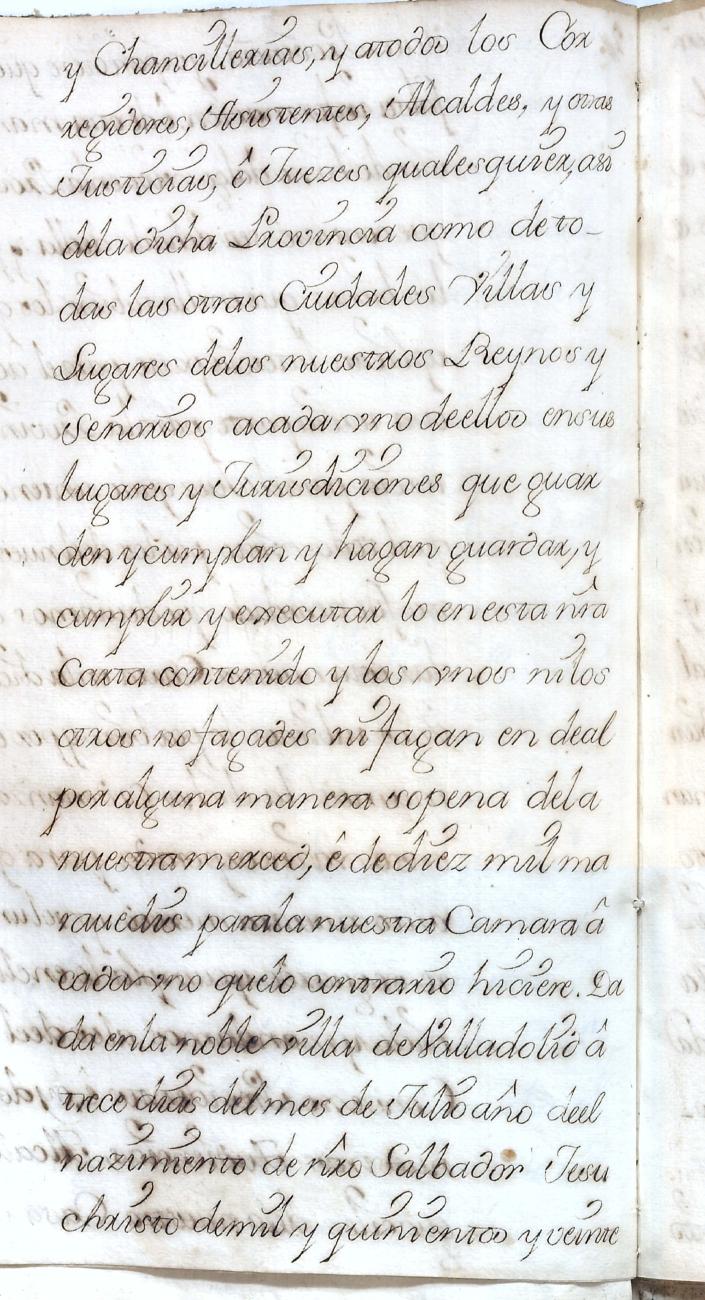 y Chancillerias, y atodos los Cor
regidores, Asistentes, Alcaldes, y otras
Justicias, ê Juezes qualesquier, asi
dela dicha Provincia como de to_
das las otras Ciudades Villas y
Lugares delos nuestros Reynos y
Señorios acada vno deellos ensus
lugares y Jurisdiciones que guar
den y cumplan y hagan guardar, y
cumplir y executar lo en esta ñrâ
Carta contenido y los vnos nilos
otros no fagades ni fagan en deal
por alguna manera sopena dela
nuestra merced, ê de diez mil ma
ravedis parala nuestra Camara â
cada vno quelo contrario hiciere. Da
da enla noble villa de Valladolid â
trece dias del mes de Julio año deel
nazimiento de ñro Salbador Jesu
christo demil y quinientos y veinte